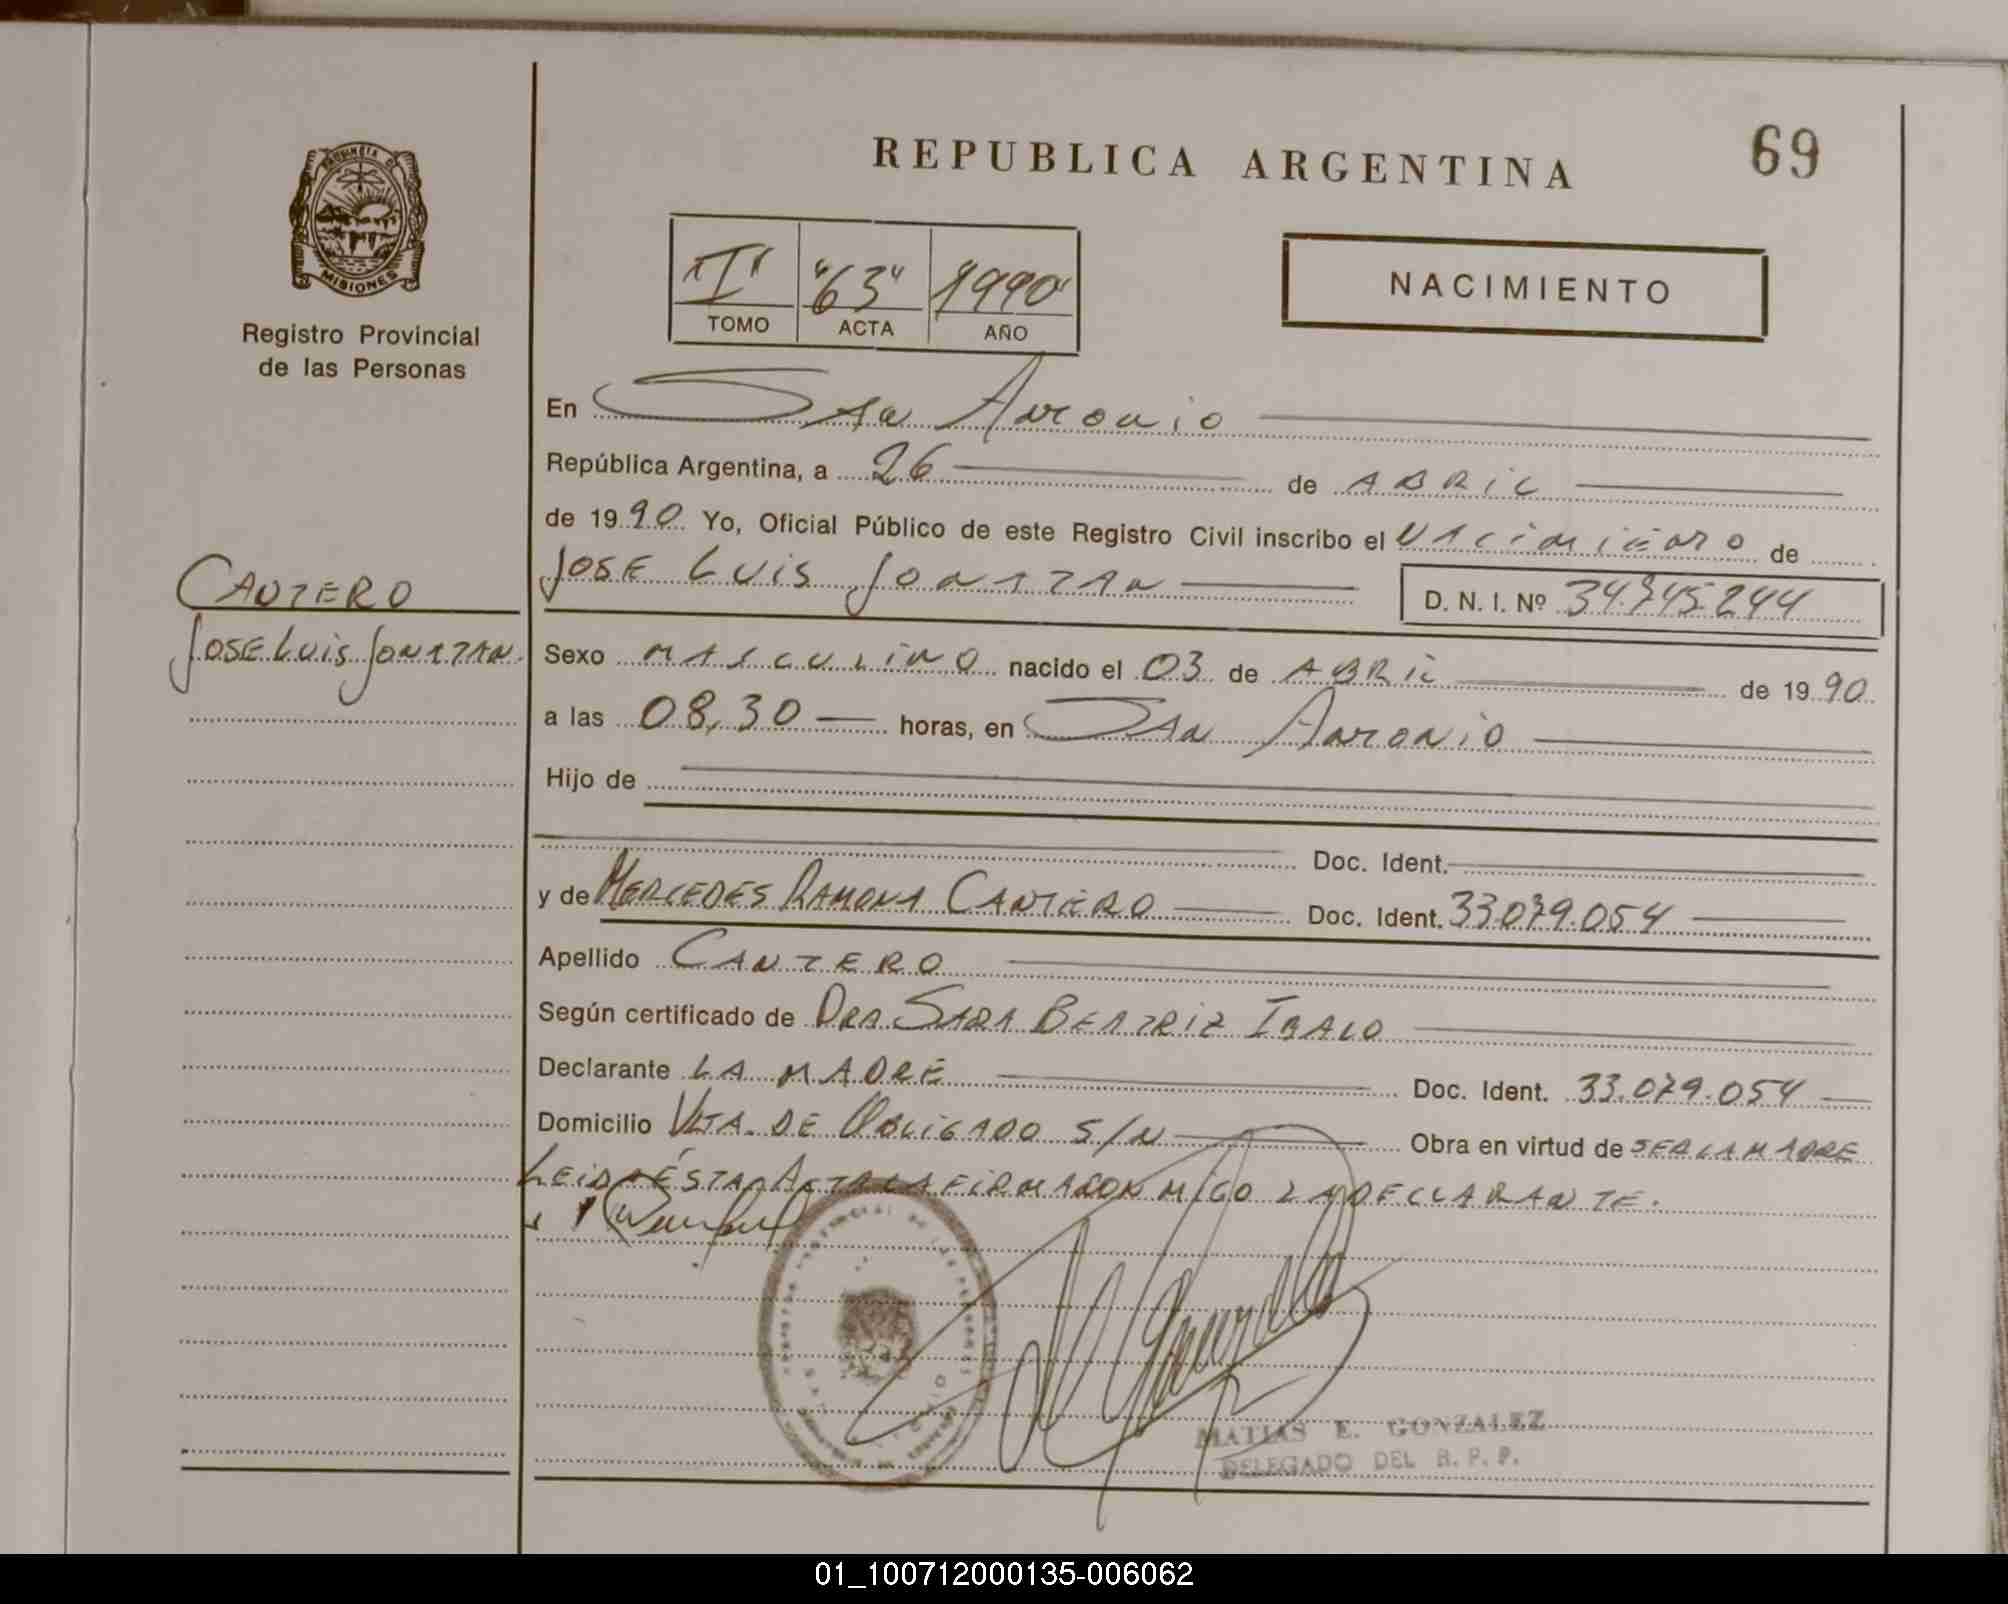 REPUBLICA ARGENTINA
69
PROVINCIA DE
MISIONES
Registro Provincial
de las Personas
"I" "63" 1990
TOMO ACTA AÑO
NACIMIENTO
En San Antonio
República Argentina, a 26 de ABRIL
de 1990 Yo, Oficial Público de este Registro Civil inscribo el Nacimiento de
JOSE LUIS JONATAN D. N. I. Nº 34.745.244
CANTERO
JOSE LUIS JONATAN
Sexo MASCULINO nacido el 03 de ABRIL de 1990
a las 08,30 horas, en San Antonio
Hijo de
Doc. Ident.
y de MERCEDES RAMONA CANTERO Doc. Ident. 33.079.054
Apellido CANTERO
Según certificado de DRA SARA BEATRIZ
Declarante LA MADRE Doc. Ident. 33.079.054
Domicilio VLTA. DE OBLIGADO S/N Obra en virtud de SER LA MADRE
LEIDA ÉSTA ACTA LA FIRMA CONMIGO LA DECLARANTE.
MATIAS E. GONZALEZ
DELEGADO DEL R. P. P.
01_100712000135-006062